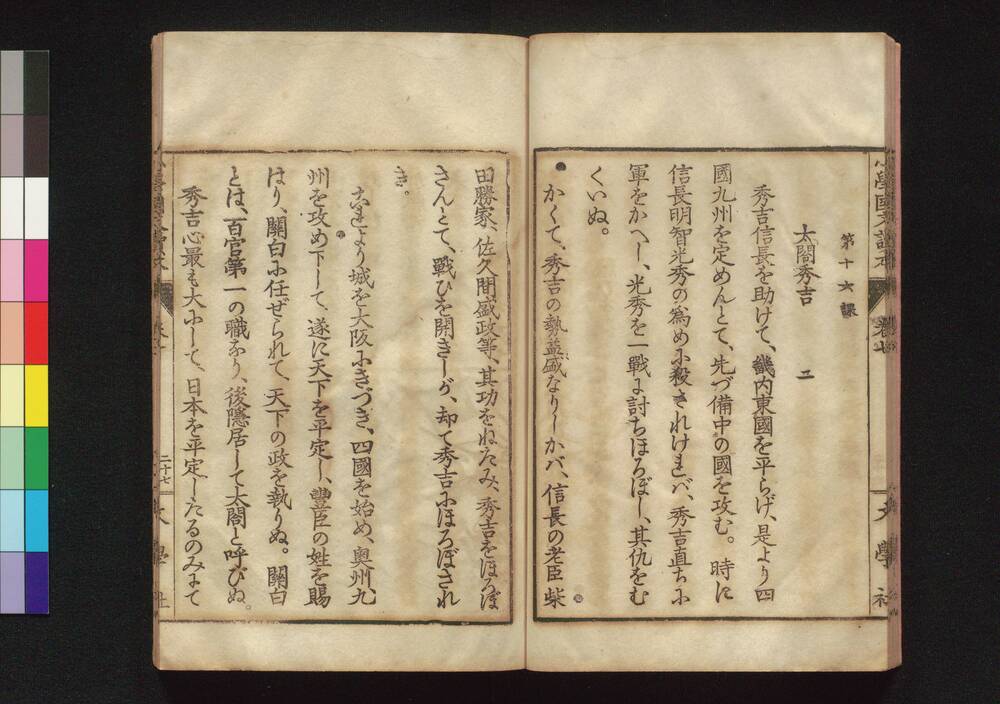 小學國文讀本
卷七
文學社
第十六課
太閤秀吉　二
秀吉信長を助けて、畿内東國を平らげ、是より四
國九州を定めんとて、先づ備中の國を攻む。時に
信長明智光秀の爲めに殺されければ、秀吉直ちに
軍をかへし、光秀を一戰に討ちほろぼし、其仇をむ
くいぬ。
かくて、秀吉の勢益盛なりしかバ、信長の老臣柴
田勝家、佐久間盛政等、其功をねたみ、秀吉をほろぼ
さんとて、戰ひを開きしが、却て秀吉にほろぼされ
き。
これより城を大阪にきづき、四國を始め、奥州、九
州を攻め下して、遂に天下を平定し、豐臣の姓を賜
はり、關白に任ぜられて、天下の政を執りぬ。關白
とは、百官第一の職なり、後隱居して太閤と呼びぬ。
秀吉心最も大にして、日本を平定したるのみにて
二十七